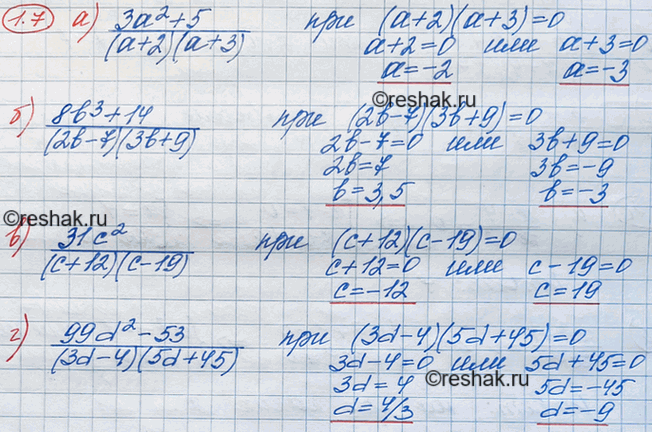 1.7 а) 3a²+5 / (a+2)(a+3) при (a+2)(a+3)=0
a+2=0 или a+3=0
a=-2 a=-3
©reshak.ru
б) 8b³+14 / (2b-7)(3b+9) при (2b-7)(3b+9)=0
2b-7=0 или 3b+9=0
2b=7 3b=-9
b=3,5 b=-3
©reshak.ru
в) 31c² / (c+12)(c-19) при (c+12)(c-19)=0
c+12=0 или c-19=0
c=-12 c=19
г) 99d²-53 / (3d-4)(5d+45) при (3d-4)(5d+45)=0
3d-4=0 или 5d+45=0
3d=4 5d=-45
©reshak.ru
d=4/3 d=-9